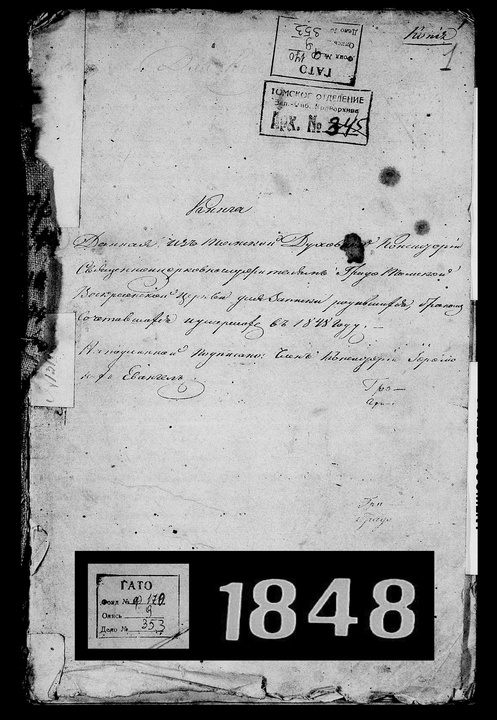 Копiя
1
ГАТО
Фонд № ф 170
Опись 9
Дело № 353
ТОМСКОЕ ОТДЕЛЕНИЕ
Арх. № 345
Книга
Данная изъ Томской Духовной Консисторiи
Священноцерковнослужителямъ Градо Томской
Воскресенской церкви для записки родившихся, бракомъ
сочетавшихся и умершихъ въ 1848 году.
На подлинной подписано: Членъ Консисторiи
Градо
ГАТО
Фонд № ф 170
Опись 9
Дело № 353
1848